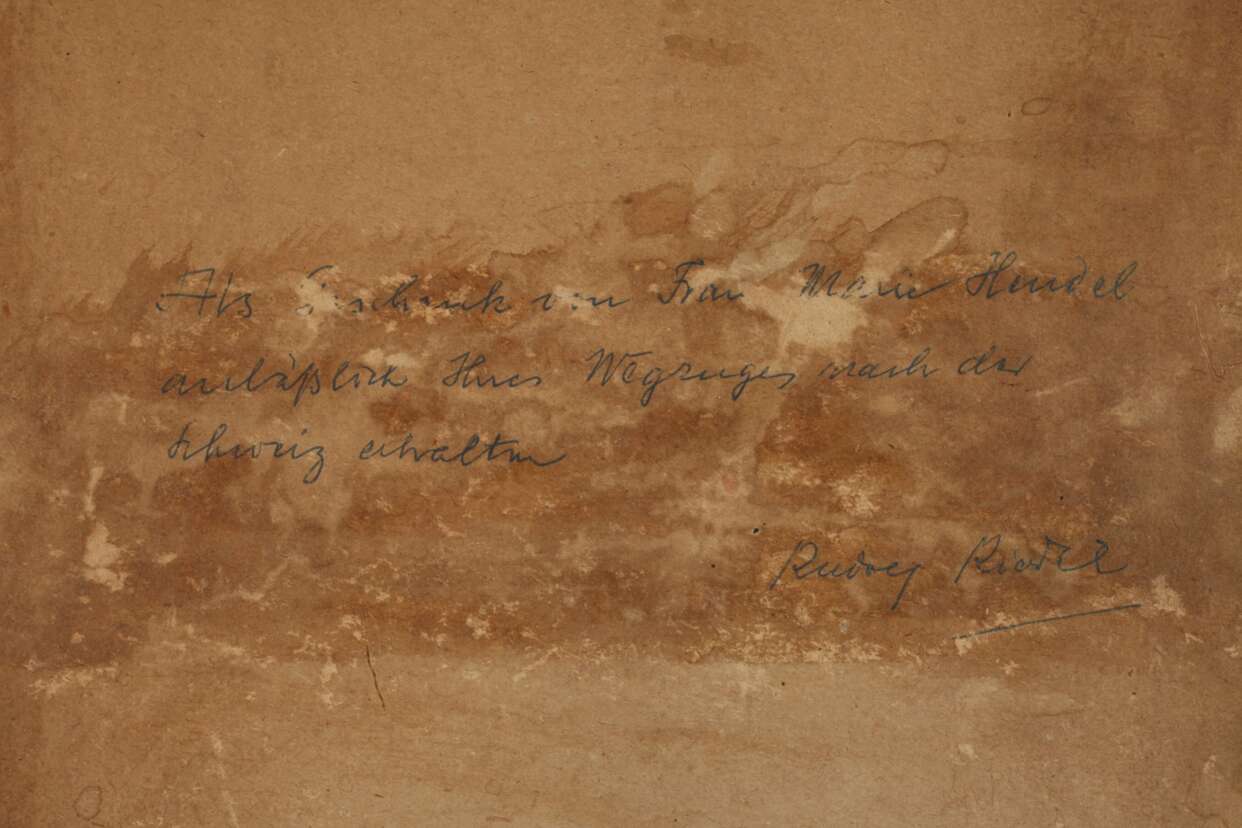 Als Geschenk von Frau Marie Hendel
anläßlich Ihres Wegzuges nach der
Schweiz erhalten
Rudolf Riedel